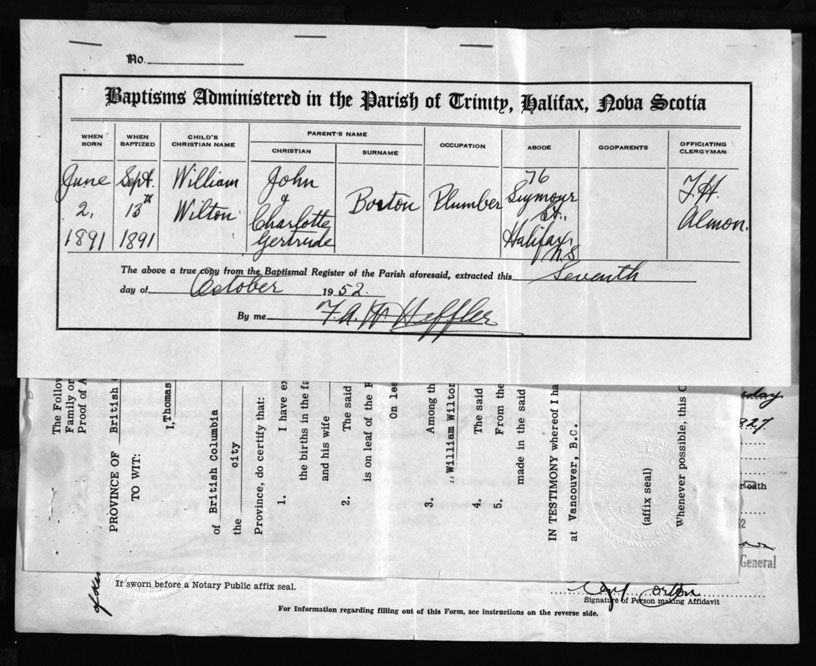 No.
Baptisms Administered in the Parish of Trinity, Halifax, Nova Scotia
WHEN BORN
WHEN BAPTIZED
CHILD'S CHRISTIAN NAME
PARENT'S NAME
CHRISTIAN
SURNAME
OCCUPATION
ABODE
GODPARENTS
OFFICIATING CLERGYMAN
June 2, 1891
Sept. 13th 1891
William Wilton
John & Charlotte Gertrude
Borton
Plumber
76 Seymour St., Halifax, N.S.
F.H. Almon.
The above a true copy from the Baptismal Register of the Parish aforesaid, extracted this Seventh
day of October 1952.
By me F.A. W Heffler
The Follow
Family or
Proof of A
PROVINCE OF British
TO WIT:
I, Thomas
of British Columbia
the city
Province, do certify that:
1. I have ex
the births in the fa
and his wife
2. The said
is on leaf of the F
On lea
3. Among th
"William Wilton
4. The said
5. From the
made in the said
IN TESTIMONY whereof I ha
at Vancouver, B.C.
(affix seal)
Whenever possible, this C
General
If sworn before a Notary Public affix seal.
Signature of Person making Affidavit
For Information regarding filling out of this Form, see instructions on the reverse side.